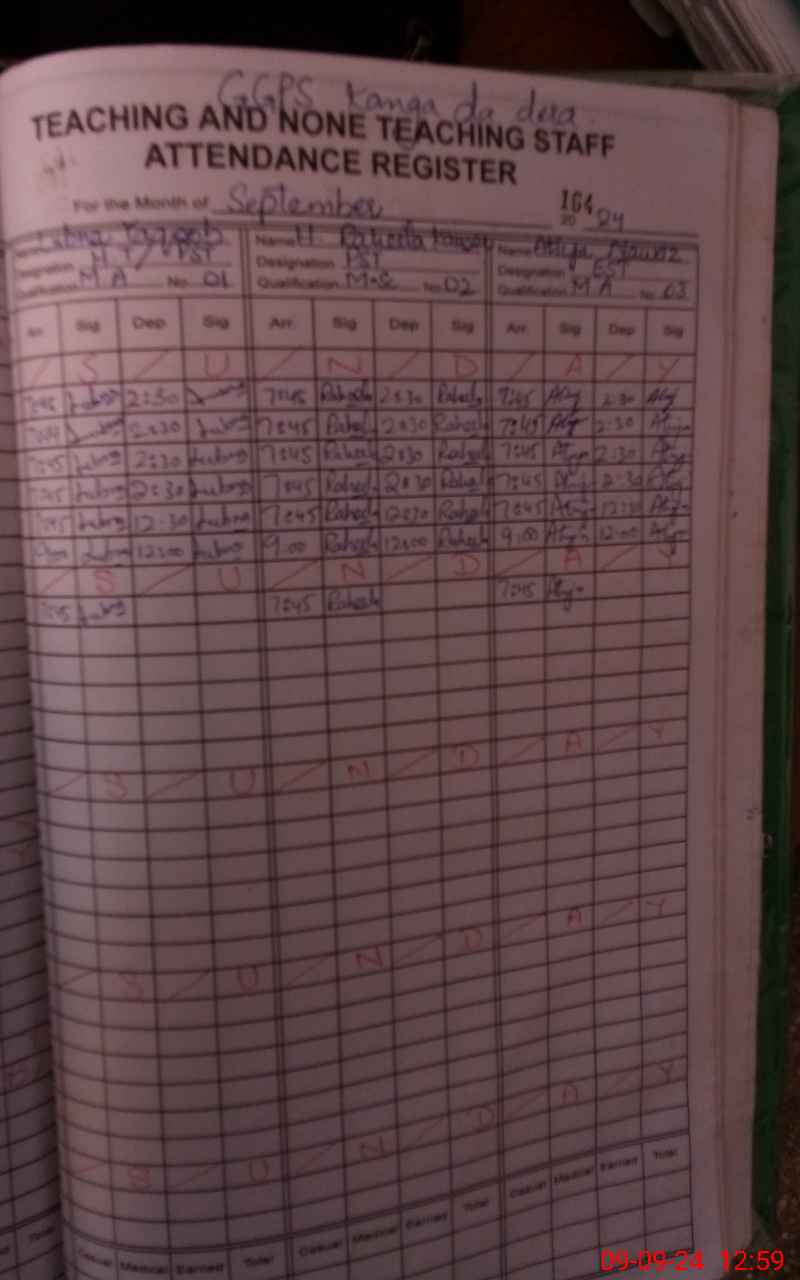 GGPS Kanga da dera
TEACHING AND NONE TEACHING STAFF
ATTENDANCE REGISTER
For the Month of September 20 24
164
Name Lubna Yaqoob Name Name Atiya Nawaz
Designation H.T/PST Designation PST Designation EST
Qualification M A No. 01 Qualification M.Sc No. 02 Qualification M A No. 03
Arr. Sig Dep Sig Arr. Sig Dep Sig Arr. Sig Dep Sig
S U N D A Y
7:45 Lubna 2:30 7:45 Raheela 2:30 Raheela 7:45 2:30
2:30 Lubna 7:45 Raheela 2:30 Raheela 7:45 2:30
7:45 Lubna 2:30 Lubna 7:45 Raheela 2:30 Raheela 7:45 2:30
7:45 Lubna 2:30 Lubna 7:45 Raheela 2:30 Raheela 7:45 2:30
7:45 Lubna 12:30 Lubna 7:45 Raheela 12:30 Raheela 7:45 12:30
Lubna 12:00 Lubna 9:00 Raheela 12:00 Raheela 9:00 12:00
S U N D A Y
7:45 Lubna 7:45 Raheela 7:45
S U N D A Y
S U N D A Y
S U N D A Y
Casual Medical Earned Total Casual Medical Earned Total Casual Medical Earned Total
09-09-24 12:59